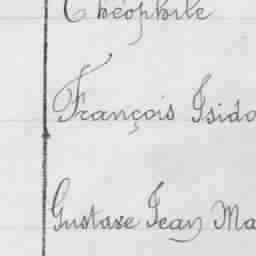 Théophile
François Isido
Gustave Jean Ma